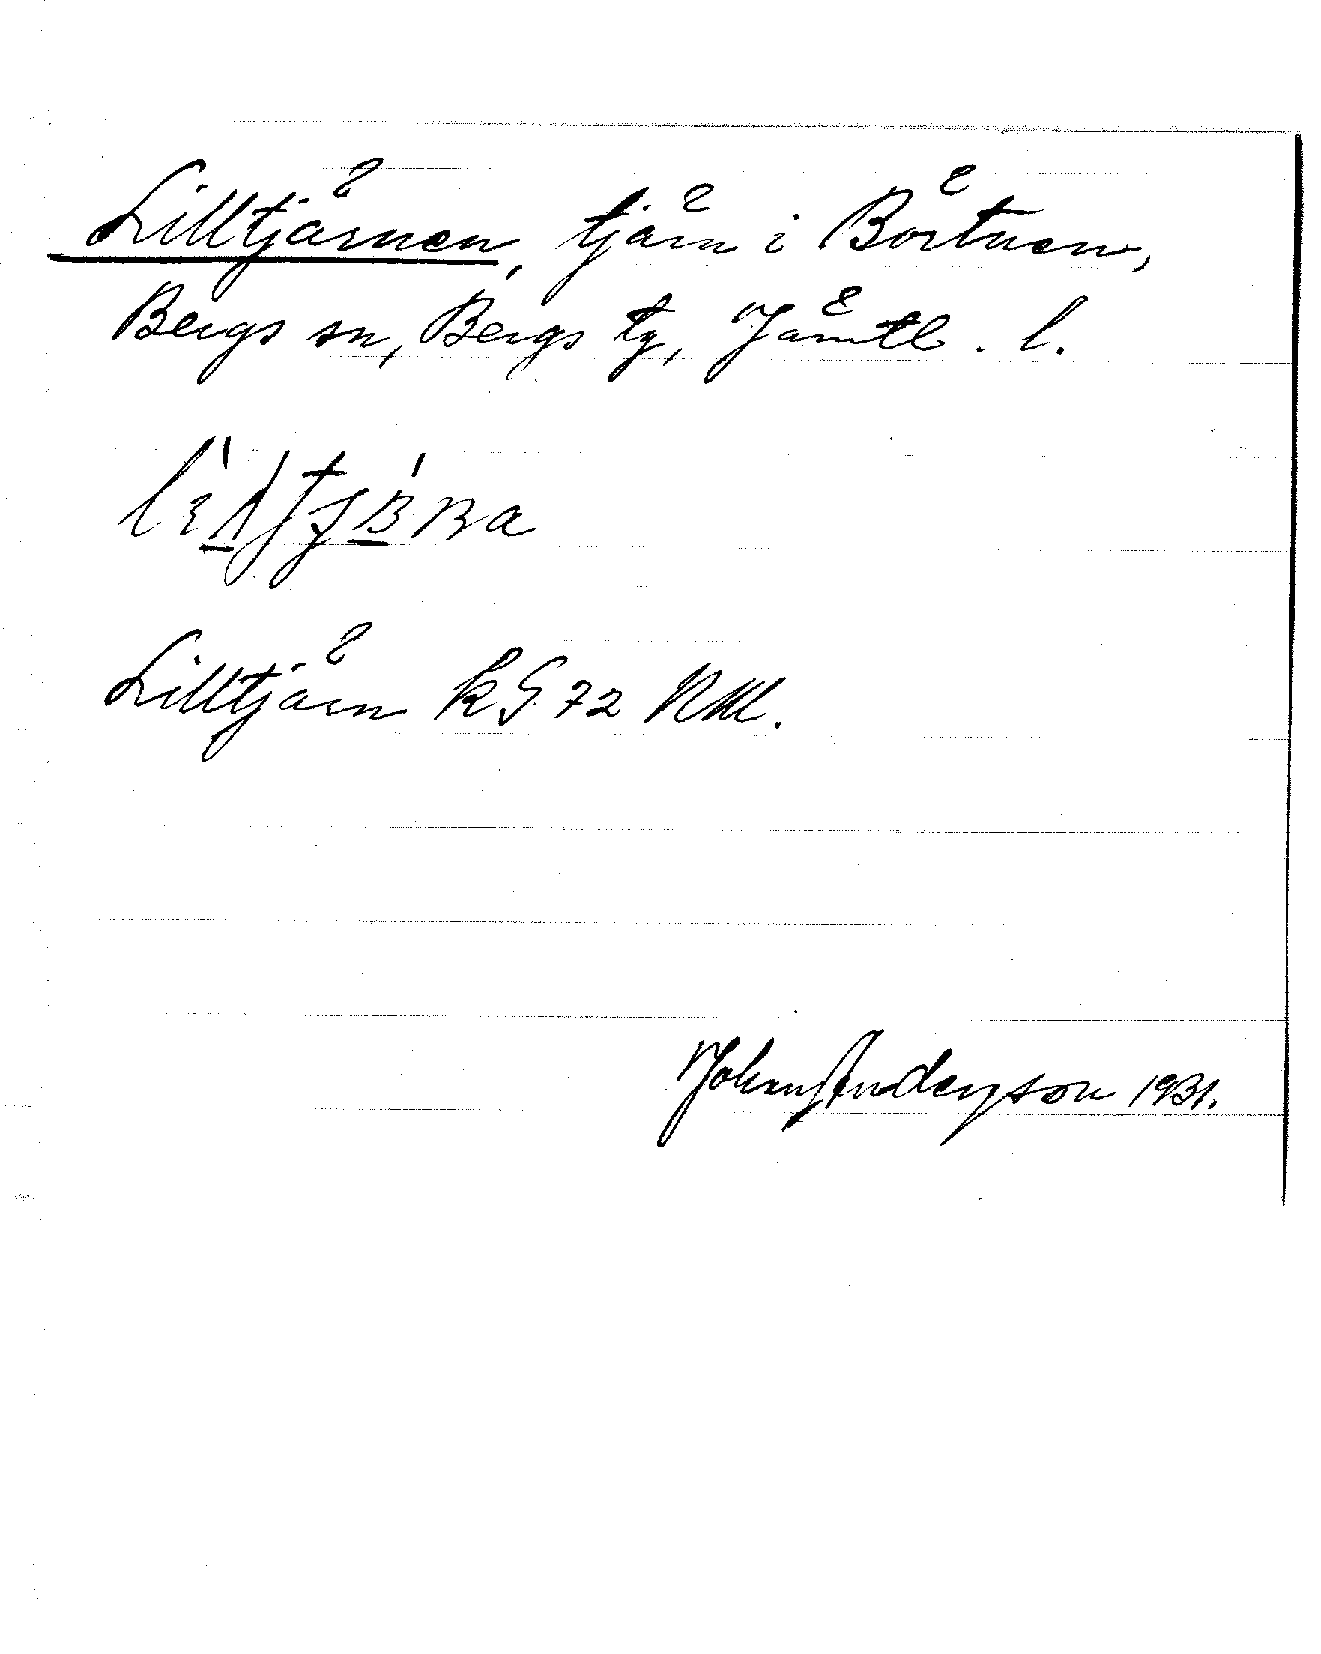 Lilltjärnen, tjärn i Börtnen,
Bergs sn, Bergs tg, Jämtl. l.
Lilltjärn k G 72 NM.
John Anderson 1931.